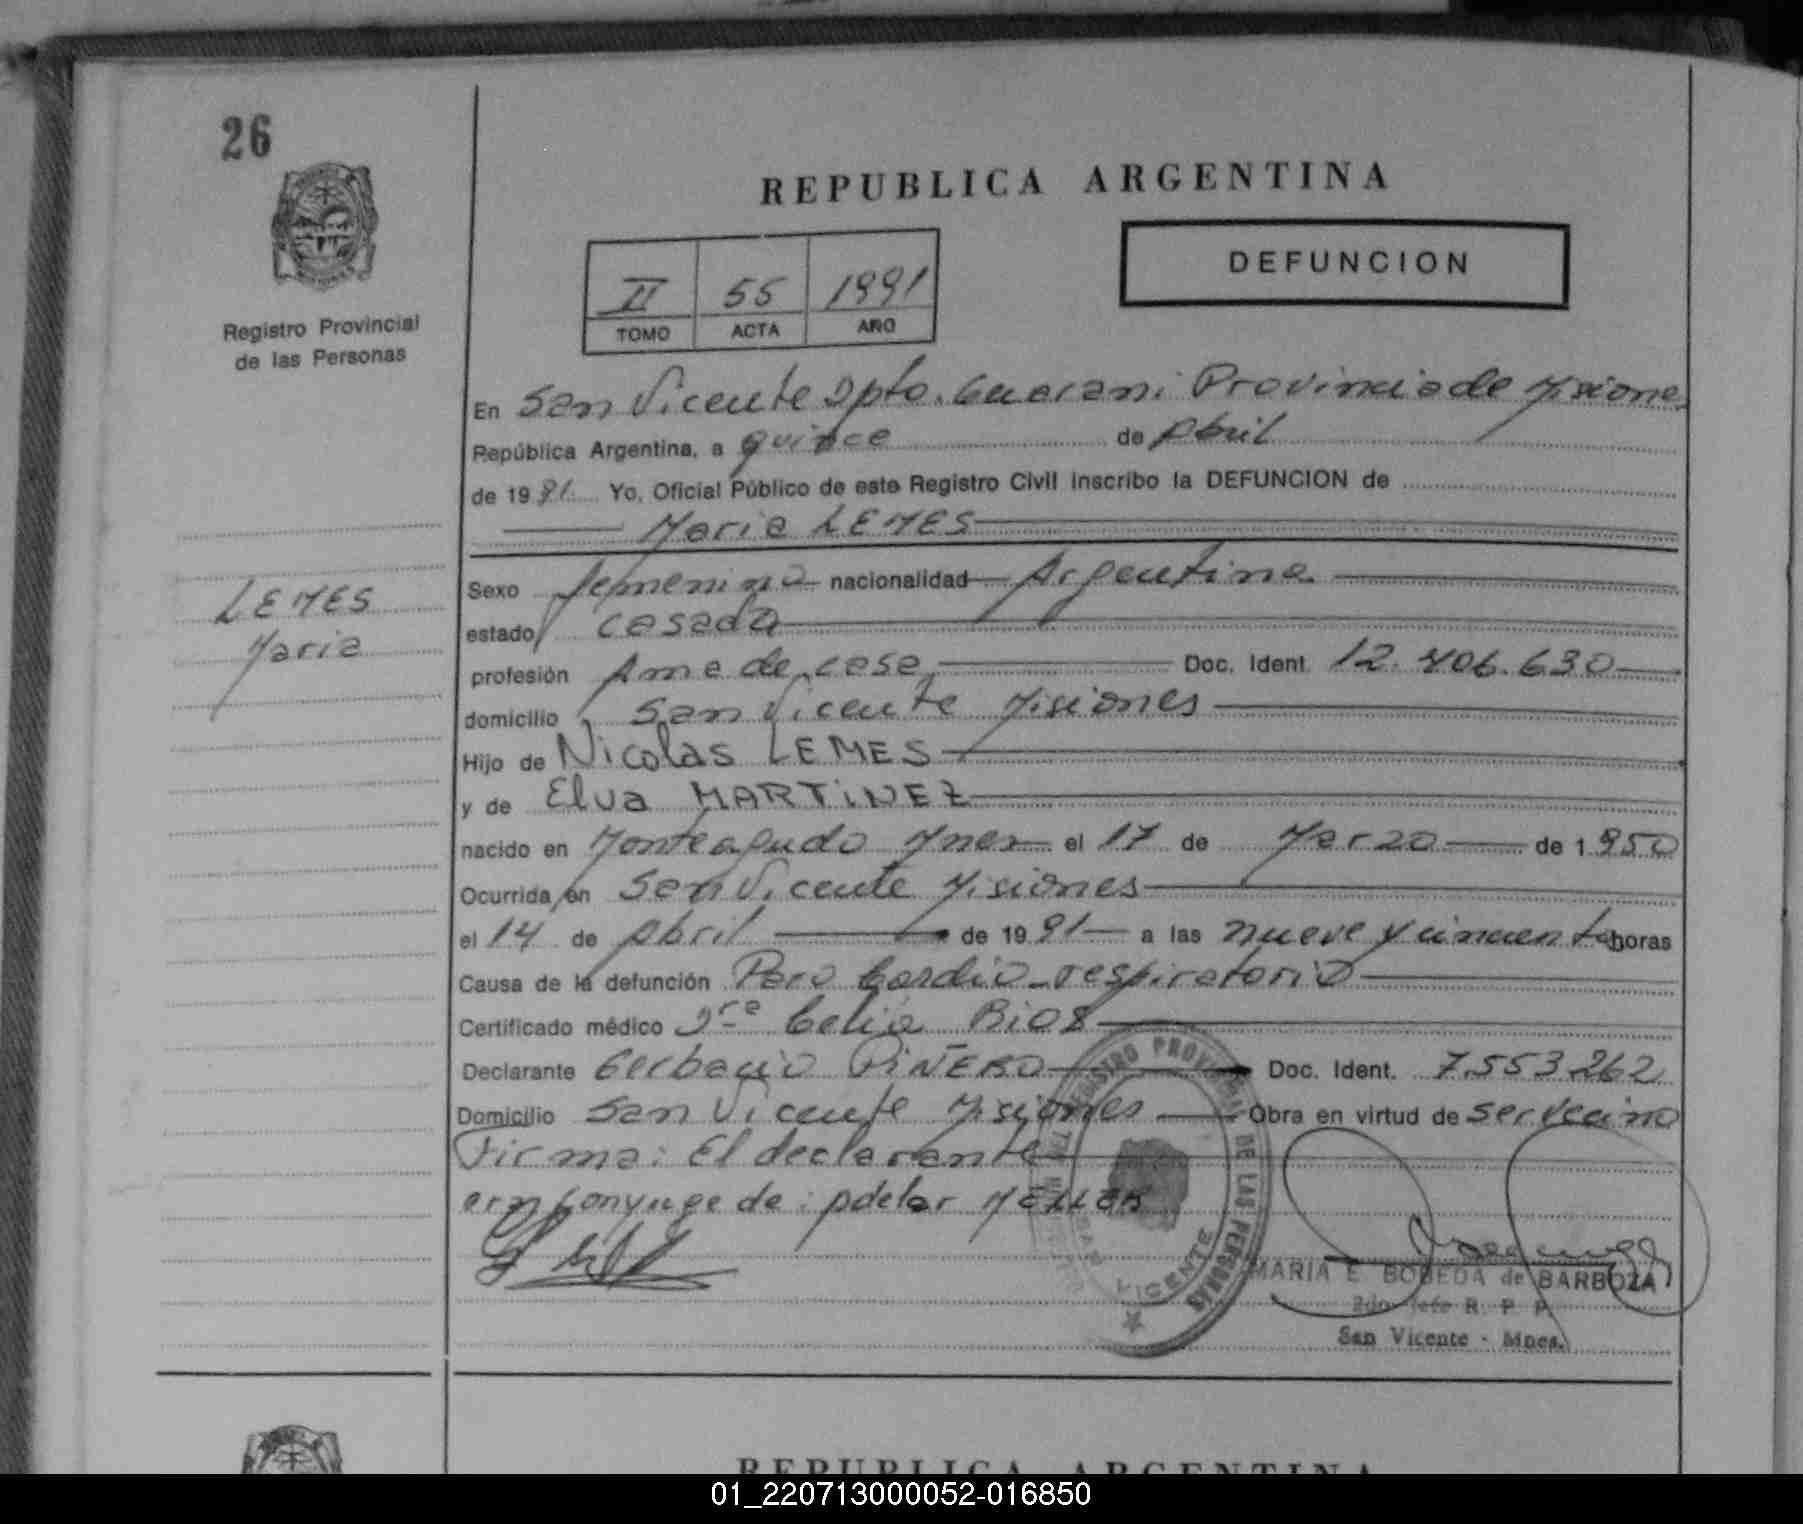 26
REPUBLICA ARGENTINA
DEFUNCION
II 55 1991
TOMO ACTA AÑO
Registro Provincial
de las Personas
En San Vicente Dpto. Guarani Provincia de Misiones
República Argentina, a quince de Abril
de 1991 Yo, Oficial Público de este Registro Civil inscribo la DEFUNCION de
Maria LEMES
LEMES
Maria
Sexo femenino nacionalidad Argentina
estado casada
profesión Ama de casa Doc. Ident. 12.406.630
domicilio San Vicente Misiones
Hijo de Nicolas LEMES
y de Elva MARTINEZ
nacido en Monteagudo Mnes el 17 de Marzo de 1950
Ocurrida en San Vicente Misiones
el 14 de Abril de 1991 a las nueve y cincuenta horas
Causa de la defunción Paro Cardio-respiratorio
Certificado médico Dra Celia Rios
Declarante Gerbacio PIÑERO Doc. Ident. 7.553.262
Domicilio San Vicente Misiones Obra en virtud de ser vecino
Firma: El declarante
era Conyuge de: Adelar MELLER
REGISTRO PROVINCIAL DE LAS PERSONAS
VICENTE
MARIA E BOBEDA de BARBOZA
2do Jefe R. P. P.
San Vicente - Mnes.
REPUBLICA ARGENTINA
01_220713000052-016850